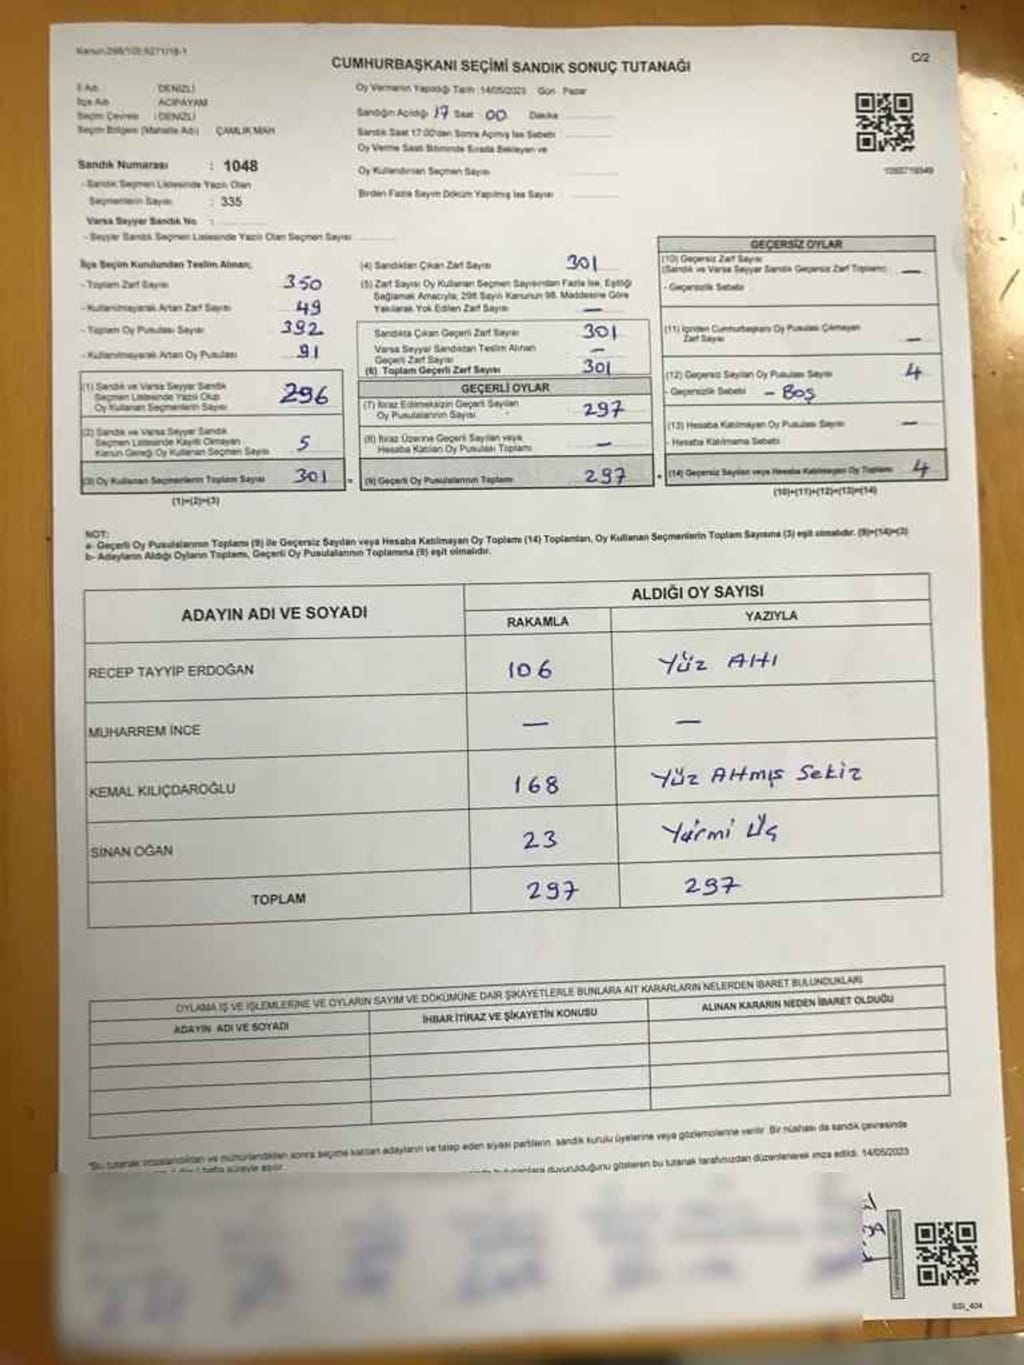 Kanun:298/105;6271/19-1
C/2
CUMHURBAŞKANI SEÇİMİ SANDIK SONUÇ TUTANAĞI
İl Adı : DENİZLİ
İlçe Adı : ACIPAYAM
Seçim Çevresi : DENİZLİ
Seçim Bölgesi (Mahalle Adı) : ÇAMLIK MAH.
Sandık Numarası : 1048
- Sandık Seçmen Listesinde Yazılı Olan
Seçmenlerin Sayısı : 335
Varsa Seyyar Sandık No :
- Seyyar Sandık Seçmen Listesinde Yazılı Olan Seçmen Sayısı
Oy Vermenin Yapıldığı Tarih :14/05/2023 Gün Pazar
Sandığın Açıldığı 17 Saat 00 Dakika
Sandık Saat 17:00'den Sonra Açılmış İse Sebebi
Oy Verme Saati Bitiminde Sırada Bekleyen ve
Oy Kullandırılan Seçmen Sayısı
Birden Fazla Sayım Döküm Yapılmış İse Sayısı
İlçe Seçim Kurulundan Teslim Alınan;
- Toplam Zarf Sayısı 350
- Kullanılmayarak Artan Zarf Sayısı 49
- Toplam Oy Pusulası Sayısı 392
- Kullanılmayarak Artan Oy Pusulası 91
(1) Sandık ve Varsa Seyyar Sandık
Seçmen Listesinde Yazılı Olup
Oy Kullanan Seçmenlerin Sayısı 296
(2) Sandık ve Varsa Seyyar Sandık
Seçmen Listesinde Kayıtlı Olmayan
Kanun Gereği Oy Kullanan Seçmen Sayısı 5
(3) Oy Kullanan Seçmenlerin Toplam Sayısı 301
(1)+(2)=(3)
(4) Sandıktan Çıkan Zarf Sayısı 301
(5) Zarf Sayısı Oy Kullanan Seçmen Sayısından Fazla İse, Eşitliği
Sağlamak Amacıyla; 298 Sayılı Kanunun 98. Maddesine Göre
Yakılarak Yok Edilen Zarf Sayısı —
Sandıkta Çıkan Geçerli Zarf Sayısı 301
Varsa Seyyar Sandıktan Teslim Alınan
Geçerli Zarf Sayısı —
(6) Toplam Geçerli Zarf Sayısı 301
GEÇERLİ OYLAR
(7) İtiraz Edilmeksizin Geçerli Sayılan
Oy Pusulalarının Sayısı 297
(8) İtiraz Üzerine Geçerli Sayılan veya
Hesaba Katılan Oy Pusulası Toplamı —
= (9) Geçerli Oy Pusulalarının Toplamı 297
GEÇERSİZ OYLAR
(10) Geçersiz Zarf Sayısı
(Sandık ve Varsa Seyyar Sandık Geçersiz Zarf Toplamı) —
- Geçersizlik Sebebi
(11) İçinden Cumhurbaşkanı Oy Pusulası Çıkmayan
Zarf Sayısı —
(12) Geçersiz Sayılan Oy Pusulası Sayısı 4
- Geçersizlik Sebebi - Boş
(13) Hesaba Katılmayan Oy Pusulası Sayısı —
- Hesaba Katılmama Sebebi
+ (14) Geçersiz Sayılan veya Hesaba Katılmayan Oy Toplamı 4
(10)+(11)+(12)+(13)=(14)
NOT:
a- Geçerli Oy Pusulalarının Toplamı (9) ile Geçersiz Sayılan veya Hesaba Katılmayan Oy Toplamı (14) Toplamları, Oy Kullanan Seçmenlerin Toplam Sayısına (3) eşit olmalıdır. (9)+(14)=(3)
b- Adayların Aldığı Oyların Toplamı, Geçerli Oy Pusulalarının Toplamına (9) eşit olmalıdır.
ADAYIN ADI VE SOYADI
ALDIĞI OY SAYISI
RAKAMLA YAZIYLA
RECEP TAYYİP ERDOĞAN 106 Yüz Altı
MUHARREM İNCE — —
KEMAL KILIÇDAROĞLU 168 Yüz Altmış Sekiz
SİNAN OĞAN 23 Yirmi Üç
TOPLAM 297 297
OYLAMA İŞ VE İŞLEMLERİNE VE OYLARIN SAYIM VE DÖKÜMÜNE DAİR ŞİKAYETLERLE BUNLARA AİT KARARLARIN NELERDEN İBARET BULUNDUKLARI
ADAYIN ADI VE SOYADI
İHBAR İTİRAZ VE ŞİKAYETİN KONUSU
ALINAN KARARIN NEDEN İBARET OLDUĞU
"Bu tutanak imzalandıktan ve mühürlendikten sonra seçime katılan adayların ve talep eden siyasi partilerin, sandık kurulu üyelerine veya gözlemcilerine verilir. Bir nüshası da sandık çevresinde
duyurulduğunu gösteren bu tutanak tarafımızdan düzenlenerek imza edildi. 14/05/2023
SSI_404